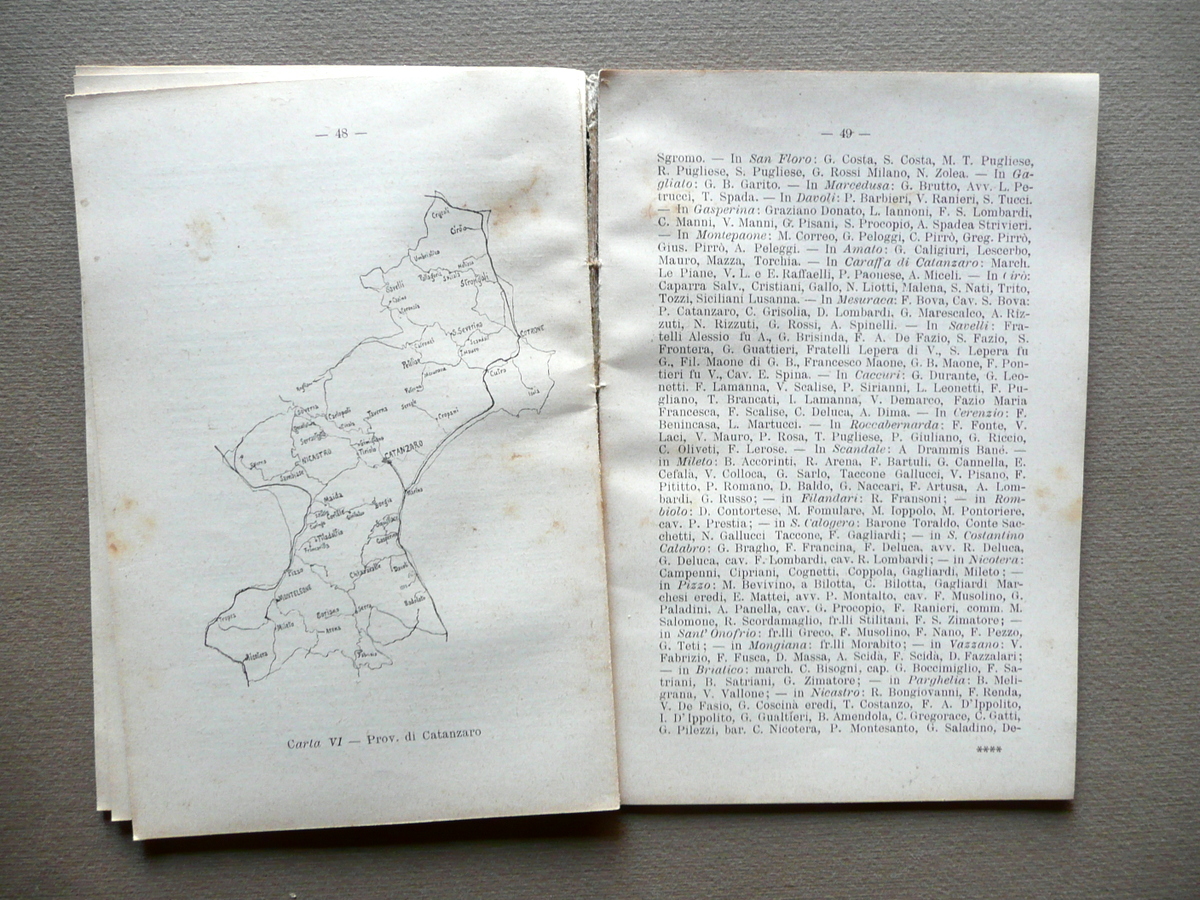 — 48 —
Cirò
Umbriatico
Strongoli
Savelli
S. Severina
COTRONE
Cutro
Isola
Policastro
Cropani
Taverna
Carlopoli
Serrastretta
NICASTRO
Tiriolo
CATANZARO
Marina
Maida
Borgia
Filadelfia
Squillace
Gasperina
Pizzo
Chiaravalle
Davoli
MONTELEONE
Soriano
Serra
Badolato
Tropea
Mileto
Arena
Nicotera
Fabrizia
Carta VI — Prov. di Catanzaro
— 49 —
Sgromo. — In San Floro: G. Costa, S. Costa, M. T. Pugliese,
R. Pugliese, S. Pugliese, G. Rossi Milano, N. Zolea. — In Ga-
gliato: G. B. Garito. — In Marcedusa: G. Brutto, Avv. L. Pe-
trucci, T. Spada. — In Davoli: P. Barbieri, V. Ranieri, S. Tucci.
— In Gasperina: Graziano Donato, L. Iannoni, F. S. Lombardi,
C. Manni, V. Manni, G. Pisani, S. Procopio, A. Spadea Strivieri.
— In Montepaone: M. Correo, G. Peloggi, C. Pirrò, Greg. Pirrò,
Gius. Pirrò, A. Peleggi. — In Amato: G. Caligiuri, Lescerbo,
Mauro, Mazza, Torchia. — In Caraffa di Catanzaro: March.
Le Piane, V. L. e E. Raffaelli, P. Paonese, A. Miceli. — In Cirò:
Caparra Salv., Cristiani, Gallo, N. Liotti, Malena, S. Nati, Trito,
Tozzi, Siciliani Lusanna. — In Mesuraca: F. Bova, Cav. S. Bova:
P. Catanzaro, C. Grisolia, D. Lombardi, G. Marescalco, A. Riz-
zuti, N. Rizzuti, G. Rossi, A. Spinelli. — In Savelli: Fra-
telli Alessio fu A., G. Brisinda, F. A. De Fazio, S. Fazio, S.
Frontera, G. Guattieri, Fratelli Lepera di V., S. Lepera fu
G., Fil. Maone di G. B., Francesco Maone, G. B. Maone, F. Pon-
tieri fu V., Cav. E. Spina. — In Caccuri: G. Durante, G. Leo-
netti. F. Lamanna, V. Scalise, P. Sirianni, L. Leonetti, F. Pu-
gliano, T. Brancati, I. Lamanna, V. Demarco, Fazio Maria
Francesca, F. Scalise, C. Deluca, A. Dima. — In Cerenzio: F.
Benincasa, L. Martucci. — In Roccabernarda: F. Fonte, V.
Laci, V. Mauro, P. Rosa, T. Pugliese, P. Giuliano, G. Riccio,
C. Oliveti, F. Lerose. — In Scandale: A Drammis Bané. —
in Mileto: B. Accorinti, R. Arena, F. Bartuli, G. Cannella, E.
Cefalà, V. Colloca, G. Sarlo, Taccone Gallucci, V. Pisano, F.
Pititto, P. Romano, D. Baldo, G. Naccari, F. Artusa, A. Lom-
bardi, G. Russo; — in Filandari: R. Fransoni; — in Rom-
biolo: D. Contortese, M. Fomularo, M. Ioppolo, M. Pontoriere,
cav. P. Prestia; — in S. Calogero: Barone Toraldo, Conte Sac-
chetti, N. Gallucci Taccone, F. Gagliardi; — in S. Costantino
Calabro: G. Bragho, F. Francina, F. Deluca, avv. R. Deluca,
G. Deluca, cav. F. Lombardi, cav. R. Lombardi; — in Nicotera:
Campenni, Cipriani, Cognetti, Coppola, Gagliardi, Mileto; —
in Pizzo: M. Bevivino, a Bilotta, C. Bilotta, Gagliardi Mar-
chesi eredi, E. Mattei, avv. P. Montalto, cav. F. Musolino, G.
Paladini, A. Panella, cav. G. Procopio, F. Ranieri, comm. M.
Salomone, R. Scordamaglio, fr.lli Stilitani, F. S. Zimatore; —
in Sant' Onofrio: fr.lli Greco, F. Musolino, F. Nano, F. Pezzo,
G. Teti; — in Mongiana: fr.lli Morabito; — in Vazzano: V.
Fabrizio, F. Fusca, D. Massa, A. Scidà, F. Scidà, D. Fazzalari;
— in Briatico: march. C. Bisogni, cap. G. Boccimiglio, F. Sa-
triani, B. Satriani, G. Zimatore; — in Parghelia: B. Meli-
grana, V. Vallone; — in Nicastro: R. Bongiovanni, F. Renda,
V. De Fasio, G. Coscinà eredi, T. Costanzo, F. A. D'Ippolito,
I. D'Ippolito, G. Gualtieri, B. Amendola, C. Gregorace, C. Gatti,
G. Pilezzi, bar. C. Nicotera, P. Montesanto, G. Saladino, De-
****